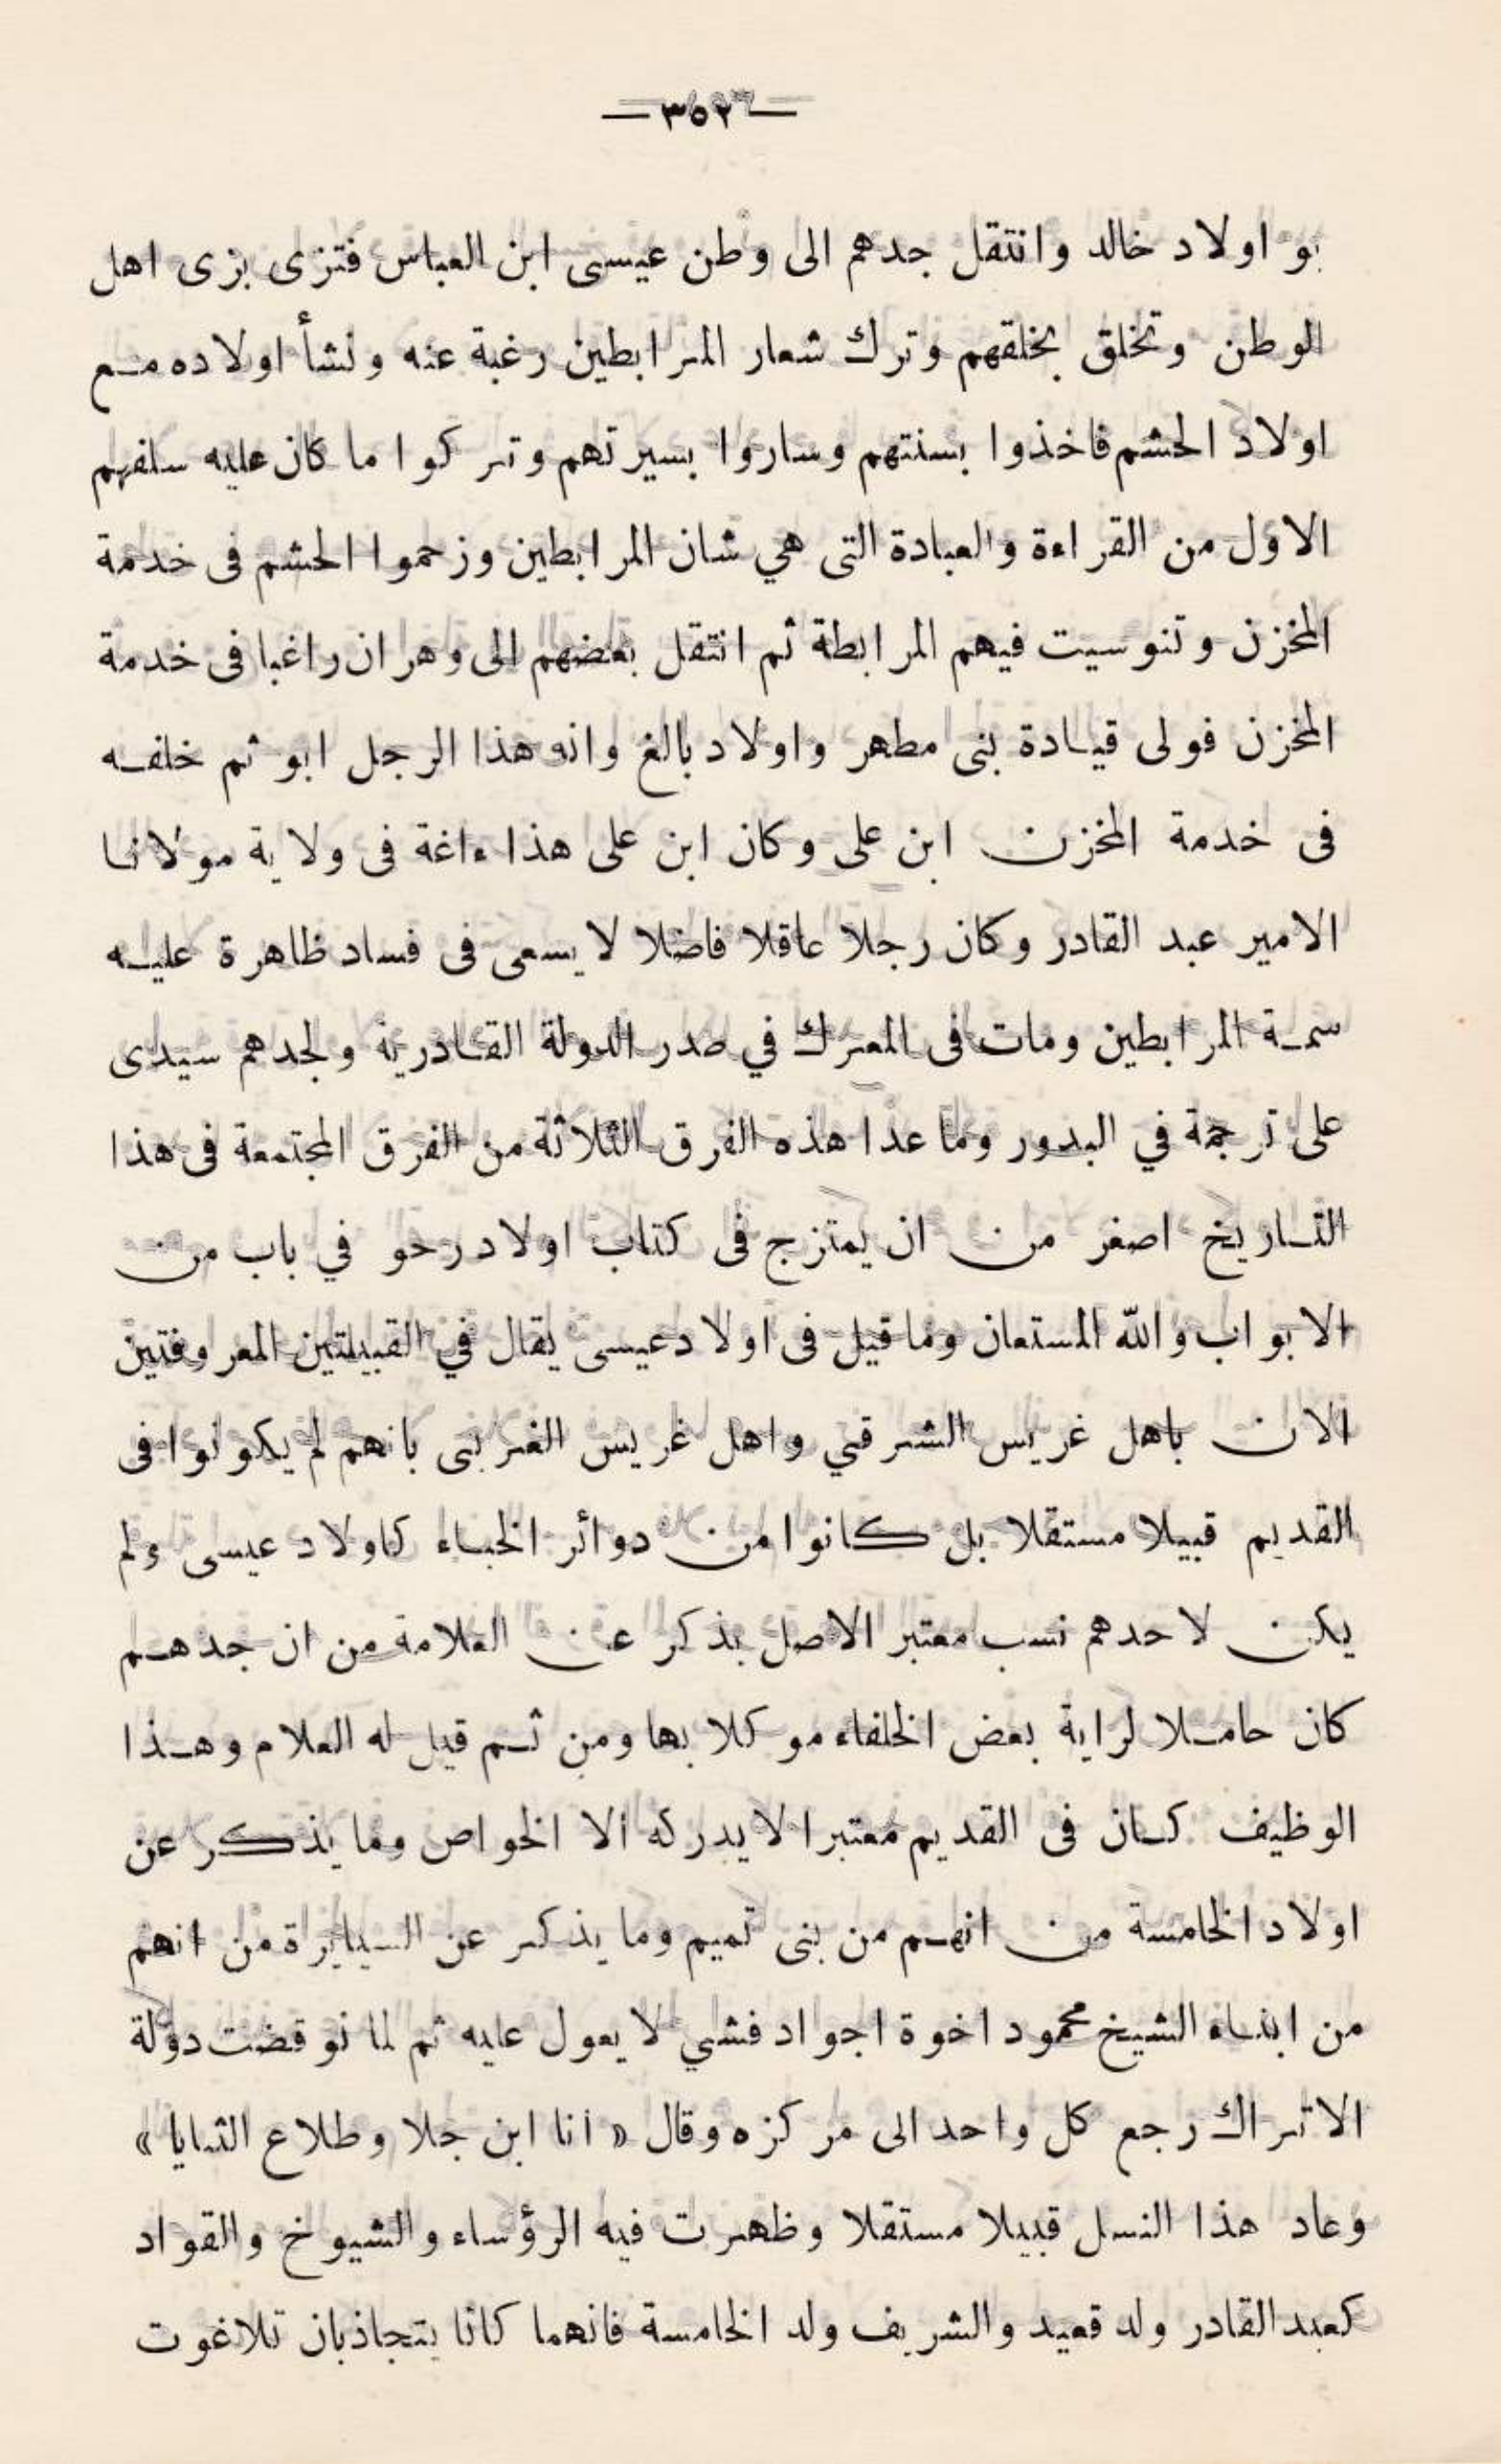 — ٣٥٢ —
بو اولاد خالد وانتقل جدهم الى وطن عيسى ابن العباس فتزى بزى اهل
الوطن وتخلق بخلقهم وترك شعار المرابطين رغبة عنه ونشأ اولاده مع
اولاد الحشم فاخذوا بسنتهم وساروا بسيرتهم وتركوا ما كان عليه سلفهم
الاول من القراءة والعبادة التى هي شان المرابطين وزحموا الحشم فى خدمة
المخزن وتنوسيت فيهم المرابطة ثم انتقل بعضهم الى وهران راغبا فى خدمة
المخزن فولى قيادة بنى مطهر واولاد بالغ وانه هذا الرجل ابو ثم خلفه
فى خدمة المخزن ابن على وكان ابن على هذا ءاغة فى ولاية مولانا
الامير عبد القادر وكان رجلا عاقلا فاضلا لا يسعى فى فساد ظاهرة عليه
سمة المرابطين ومات فى المعرك في صدر الدولة القادرية ولجدهم سيدى
على ترجمة في البدور وما عدا هذه الفرق الثلاثة من الفرق المجتمعة فى هذا
التاريخ اصغر من ان يمتزج فى كتاب اولاد رحو في باب من
الابواب والله المستعان وما قيل فى اولاد عيسى يقال في القبيلتين المعروفتين
الان باهل غريس الشرقي واهل غريس الغربى بانهم لم يكونوا فى
القديم قبيلا مستقلا بل كانوا من دوائر الخباء كاولاد عيسى ولم
يكن لاحدهم نسب معتبر الاصل يذكر عن العلامة من ان جدهم
كان حاملا لراية بعض الخلفاء موكلا بها ومن ثم قيل له العلام وهذا
الوظيف كان فى القديم معتبرا لا يدركه الا الخواص وما يذكر عن
اولاد الخامسة من انهم من بنى تميم وما يذكر عن السيايرة من انهم
من ابناء الشيخ محمود اخوة اجواد فشي لا يعول عليه ثم لما نوقضت دولة
الاتراك رجع كل واحد الى مركزه وقال « انا ابن جلا وطلاع الثنايا »
وعاد هذا النسل قبيلا مستقلا وظهرت فيه الرؤساء والشيوخ والقواد
كعبد القادر ولد قعيد والشريف ولد الخامسة فانهما كانا يتجاذبان تلاغوت